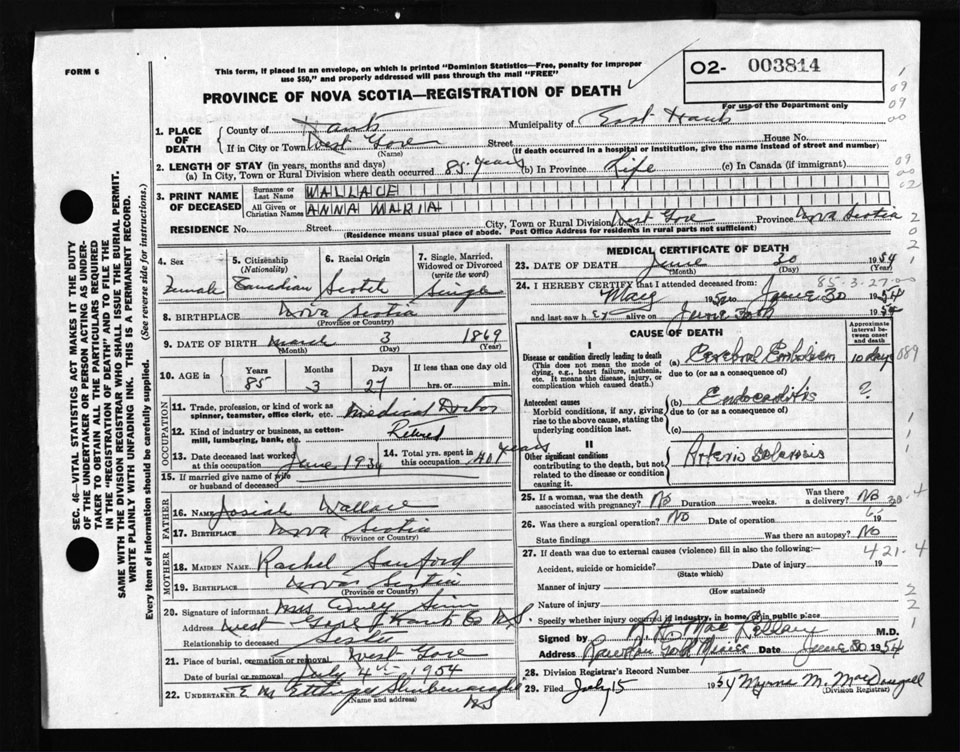 FORM 6
This form, if placed in an envelope, on which is printed "Dominion Statistics—Free, penalty for improper
use $50," and properly addressed will pass through the mail "FREE"
O2- 003814
PROVINCE OF NOVA SCOTIA—REGISTRATION OF DEATH
For use of the Department only
1. PLACE OF DEATH
County of Hants Municipality of East Hants
If in City or Town West Gore Street House No.
(Name) (If death occurred in a hospital or institution, give the name instead of street and number)
2. LENGTH OF STAY (in years, months and days)
(a) In City, Town or Rural Division where death occurred 85 years (b) In Province Life (c) In Canada (if immigrant)
3. PRINT NAME OF DECEASED
Surname or Last Name WALLACE
All Given or Christian Names ANNA MARIA
RESIDENCE No. Street City, Town or Rural Division West Gore Province Nova Scotia
(Residence means usual place of abode. Post Office Address for residents in rural parts not sufficient)
4. Sex Female
5. Citizenship (Nationality) Canadian
6. Racial Origin Scotch
7. Single, Married, Widowed or Divorced (write the word) Single
8. BIRTHPLACE Nova Scotia
(Province or Country)
9. DATE OF BIRTH March 3 1869
(Month) (Day) (Year)
10. AGE in Years Months Days If less than one day old
85 3 27 hrs. or min.
OCCUPATION
11. Trade, profession, or kind of work as spinner, teamster, office clerk, etc. Medical Doctor
12. Kind of industry or business, as cotton-mill, lumbering, bank, etc. Retired
13. Date deceased last worked at this occupation June 1934
14. Total yrs. spent in this occupation 40 years
15. If married give name of wife or husband of deceased
FATHER
16. Name Josiah Wallace
17. Birthplace Nova Scotia
(Province or Country)
MOTHER
18. MAIDEN NAME Rachel Sanford
19. BIRTHPLACE Nova Scotia
(Province or Country)
20. Signature of informant Mrs Sim
Address West Gore Hants Co N.S.
Relationship to deceased Sister
21. Place of burial, cremation or removal West Gore
Date of burial or removal July 4th 1954
22. UNDERTAKER E M Ettinger Shubenacadie
(Name and address) NS
MEDICAL CERTIFICATE OF DEATH
23. DATE OF DEATH June 30 1954
(Month) (Day) (Year)
85-3-27
24. I HEREBY CERTIFY that I attended deceased from:
May 1950 to June 30 1954
and last saw her alive on June 30th 1954
CAUSE OF DEATH
Approximate interval between onset and death
I
Disease or condition directly leading to death
(This does not mean the mode of dying, e.g., heart failure, asthenia, etc. It means the disease, injury, or complication which caused death.)
(a) Cerebral Embolism 10 days
due to (or as a consequence of)
089
Antecedent causes
Morbid conditions, if any, giving rise to the above cause, stating the underlying condition last.
(b) Endocarditis ?
due to (or as a consequence of)
(c)
II
Other significant conditions
contributing to the death, but not related to the disease or condition causing it.
Arterio Sclerosis
25. If a woman, was the death associated with pregnancy? No Duration weeks. Was there a delivery? No
26. Was there a surgical operation? No Date of operation 19
State findings Was there an autopsy? No
27. If death was due to external causes (violence) fill in also the following:-
421-4
Accident, suicide or homicide? Date of injury 19
(State which)
Manner of injury
(How sustained)
Nature of injury
Specify whether injury occurred in industry, in home, or in public place
Signed by Mac Lellan M.D.
Address Rawdon Gold Mines Date June 30 1954
28. Division Registrar's Record Number
29. Filed July 15 1954 Myrna M. MacDougall
(Division Registrar)
SEC. 46—VITAL STATISTICS ACT MAKES IT THE DUTY
OF THE UNDERTAKER OR PERSON ACTING AS UNDER-
TAKER TO OBTAIN ALL THE PARTICULARS REQUIRED
IN THE "REGISTRATION OF DEATH" AND TO FILE THE
SAME WITH THE DIVISION REGISTRAR WHO SHALL ISSUE THE BURIAL PERMIT.
WRITE PLAINLY WITH UNFADING INK. THIS IS A PERMANENT RECORD.
Every item of information should be carefully supplied. (See reverse side for instructions.)